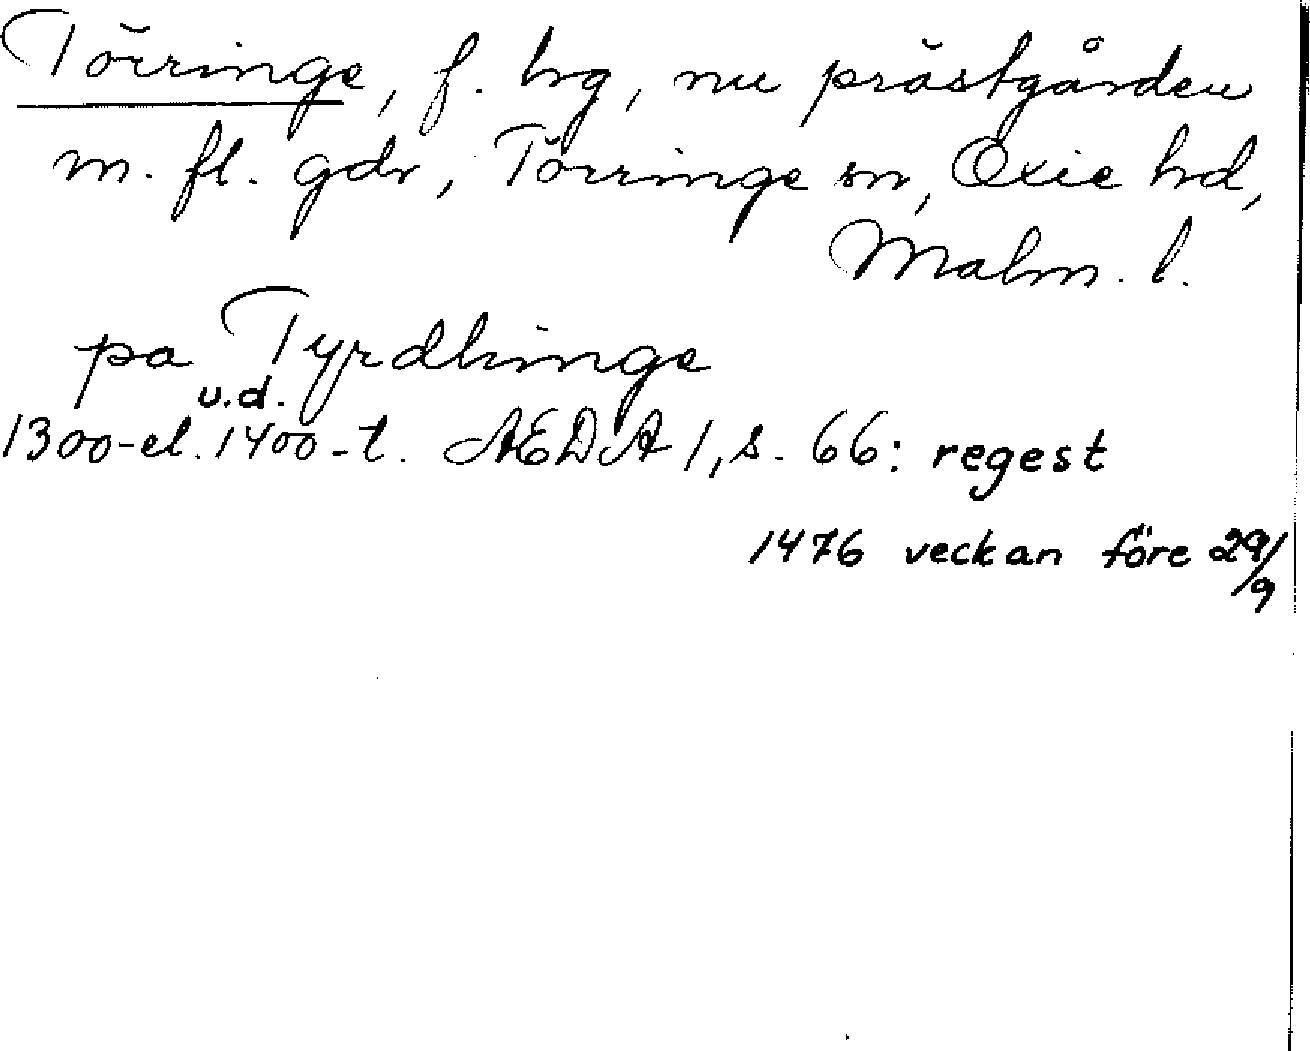 Törringe, f. hg, nu prästgården
m. fl. gdr, Törringe sn, Oxie hd,
Malm. l.
pa Tyrdhinge
u.d.
1300-el. 1400-t. AEDA 1, s. 66: regest
1476 veckan före 29/9